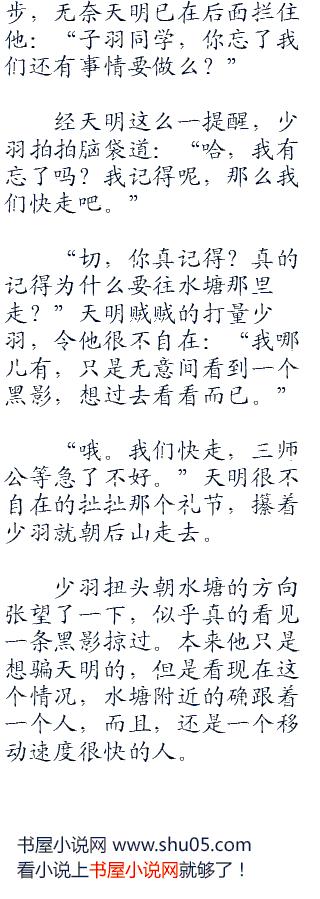 步，无奈天明已在后面拦住
他：“子羽同学，你忘了我
们还有事情要做么？”
经天明这么一提醒，少
羽拍拍脑袋道：“哈，我有
忘了吗？我记得呢，那么我
们快走吧。”
“切，你真记得？真的
记得为什么要往水塘那里
走？”天明贼贼的打量少
羽，令他很不自在：“我哪
儿有，只是无意间看到一个
黑影，想过去看看而已。”
“哦。我们快走，三师
公等急了不好。”天明很不
自在的扯扯那个礼节，攥着
少羽就朝后山走去。
少羽扭头朝水塘的方向
张望了一下，似乎真的看见
一条黑影掠过。本来他只是
想骗天明的，但是看现在这
个情况，水塘附近的确跟着
一个人，而且，还是一个移
动速度很快的人。
书屋小说网 www.shu05.com
看小说上书屋小说网就够了！